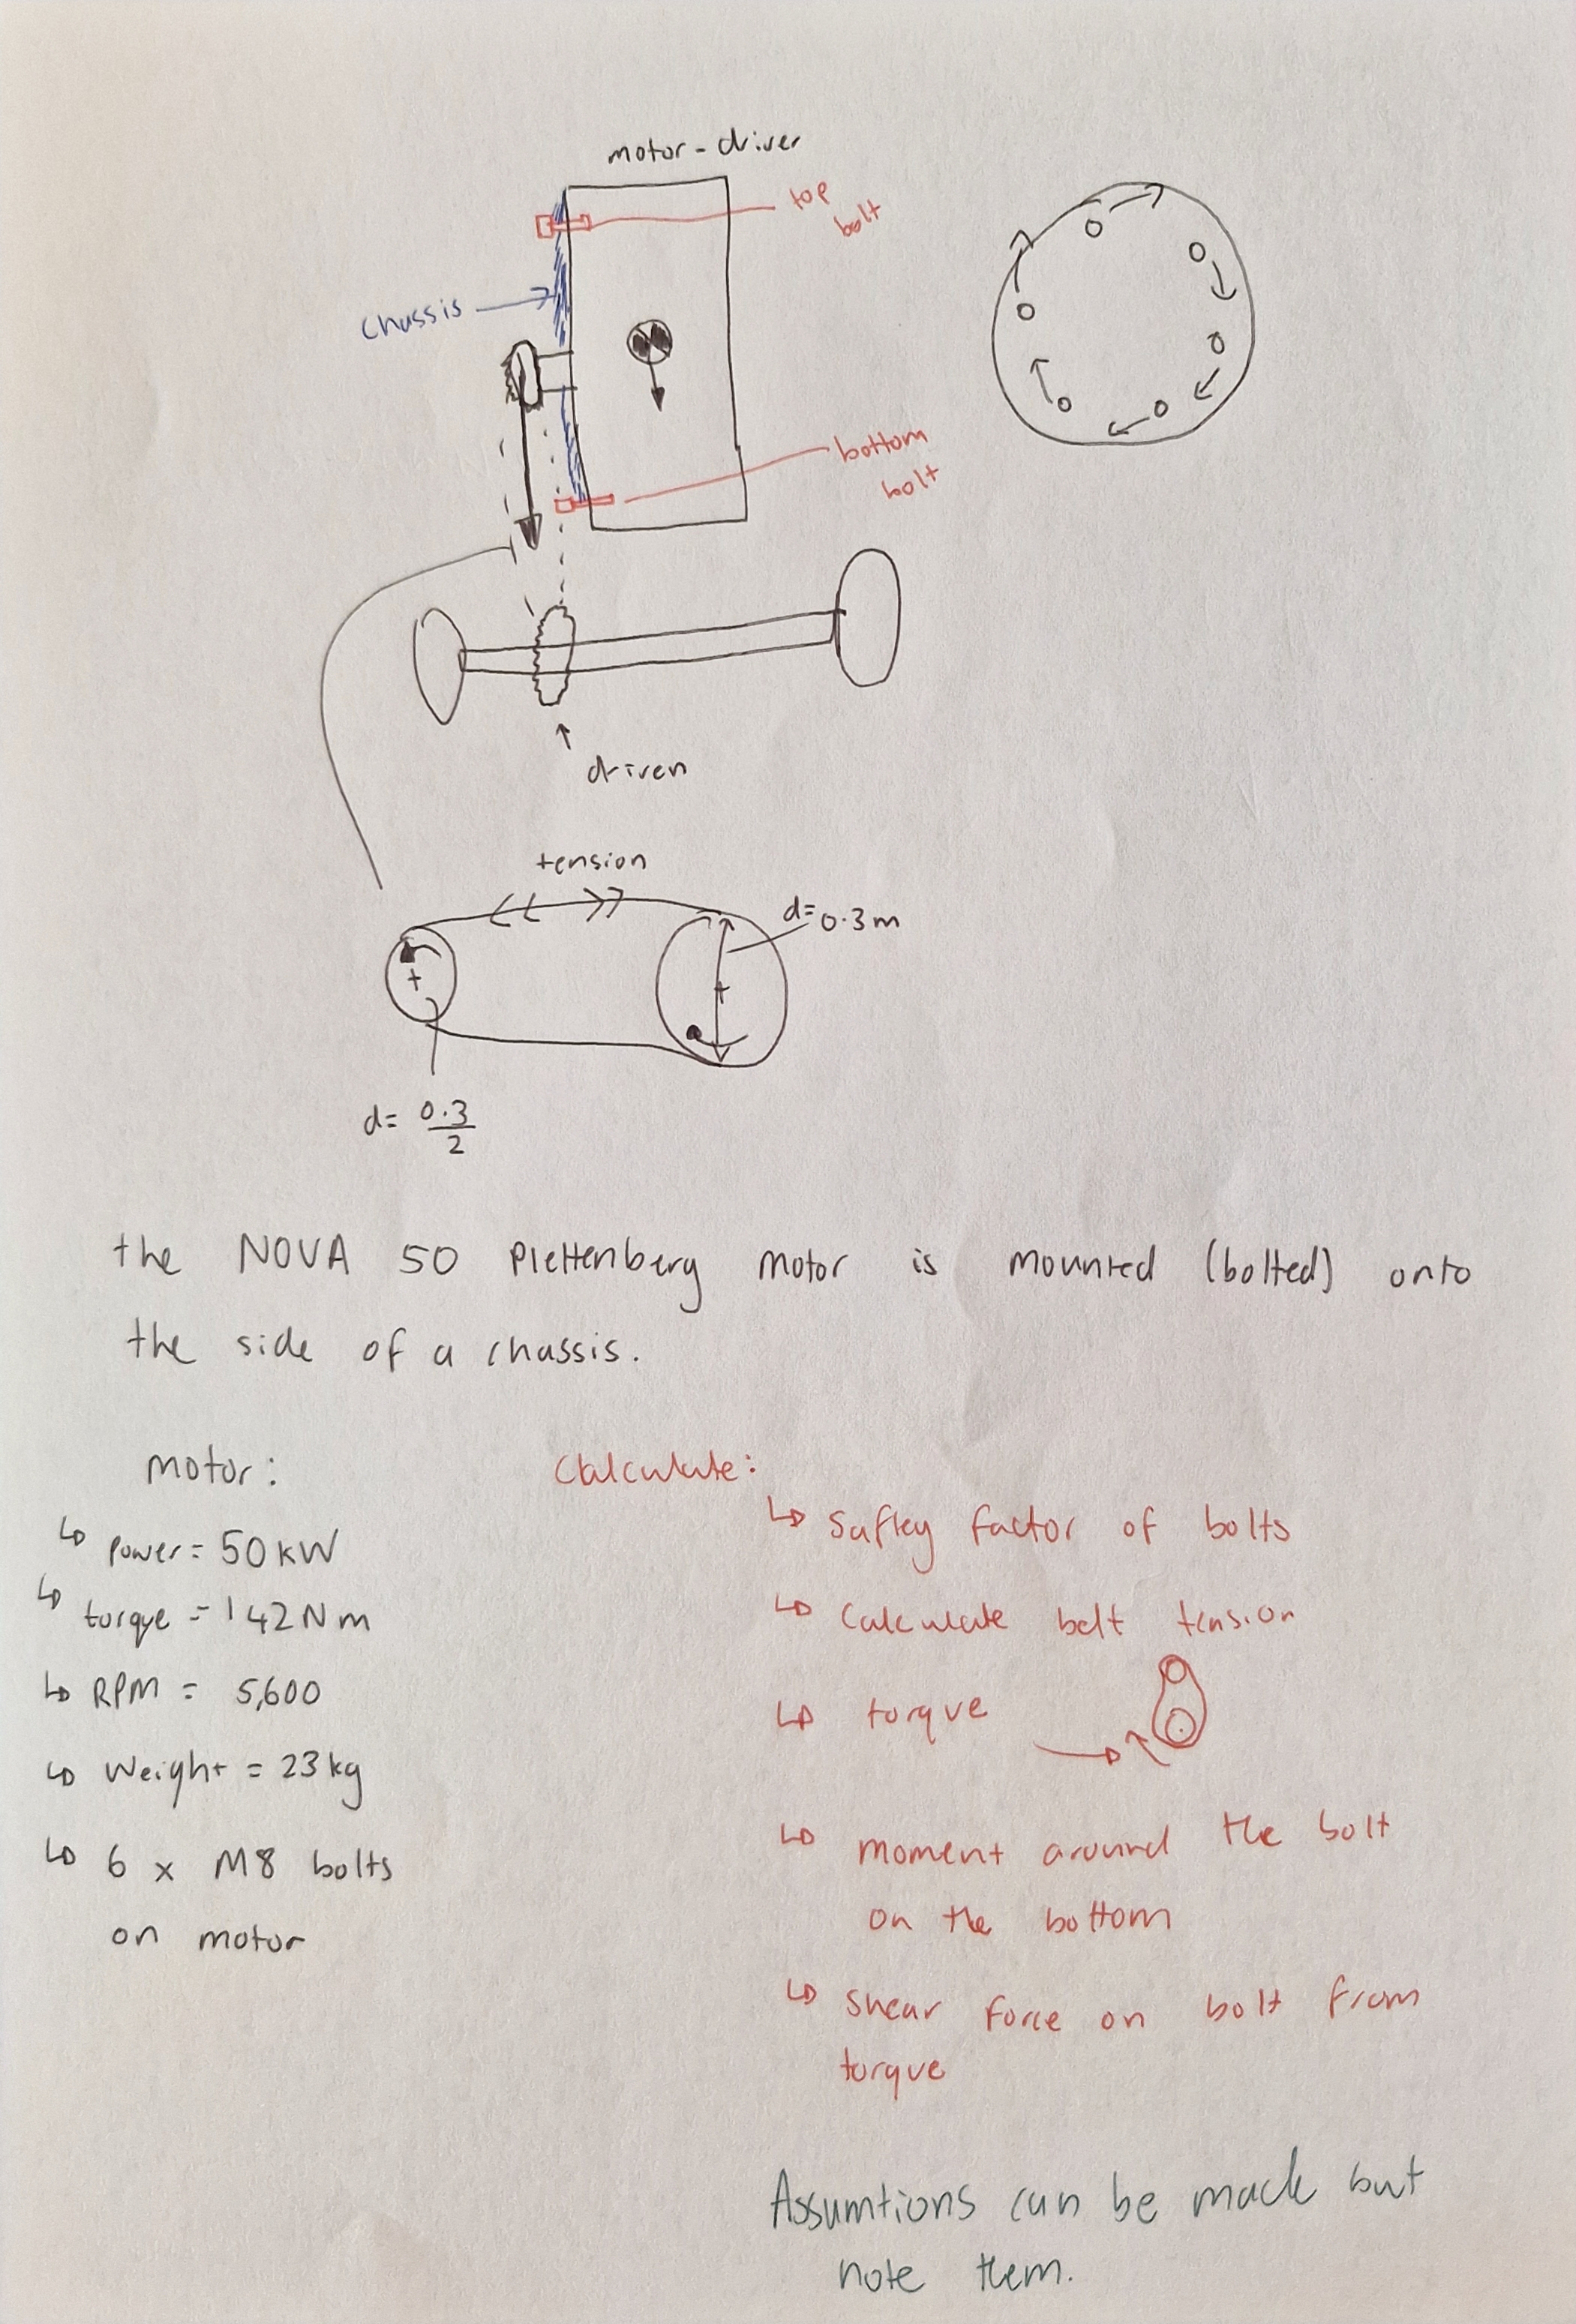 motor - driver
top
bolt
chassis
bottom
bolt
driven
tension
d=
0.3m
d= 0.3
2
the NOVA 50 Plettenberg motor is mounted (bolted) onto
the side of a chassis.
motor:
Calculate:
↳ Power = 50kW
↳ Saftey factor of bolts
↳ torque = 142Nm
↳ Calculate belt tension
↳ RPM = 5,600
↳ torque
↳ Weight = 23kg
↳ moment around the bolt
on the bottom
↳ 6 x M8 bolts
on motor
↳ Shear force on bolt from
torque
Assumtions can be made but
note them.